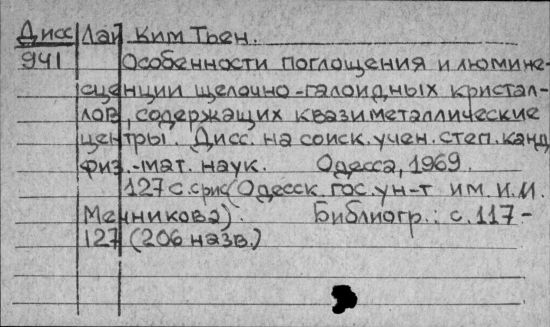 Дисс Лай Ким Тьен.
941 Особенности поглощения и люмине-
сценции щелочно-галоидных кристал-
лов, содержащих квазиметаллические
центры. Дисс. на соиск. учен. степ. канд
физ.-мат. наук. Одесса, 1969.
127 с. с рис (Одесск. гос. ун-т им. И.И.
Мечникова). Библиогр.: с. 117-
127 (206 назв.)